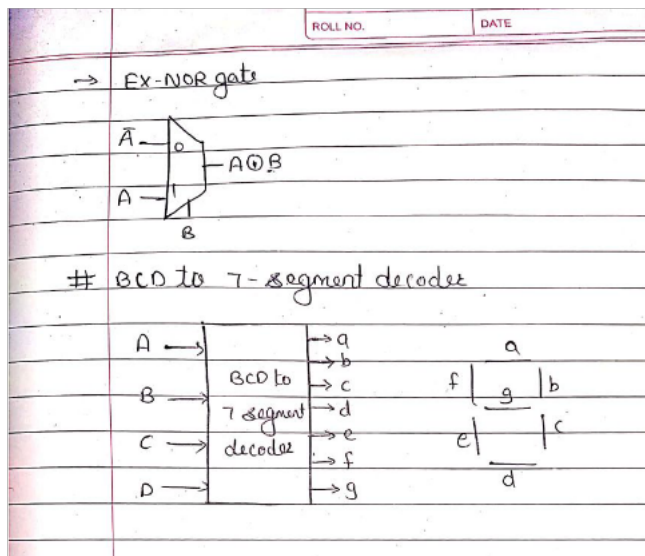 ROLL NO. DATE
→ EX-NOR gate
Ā
0
A⊙B
A
1
B
# BCD to 7-segment decoder
A
B
C
D
BCD to
7 segment
decoder
→a
→b
→c
→d
→e
→f
→g
a
f g b
e c
d